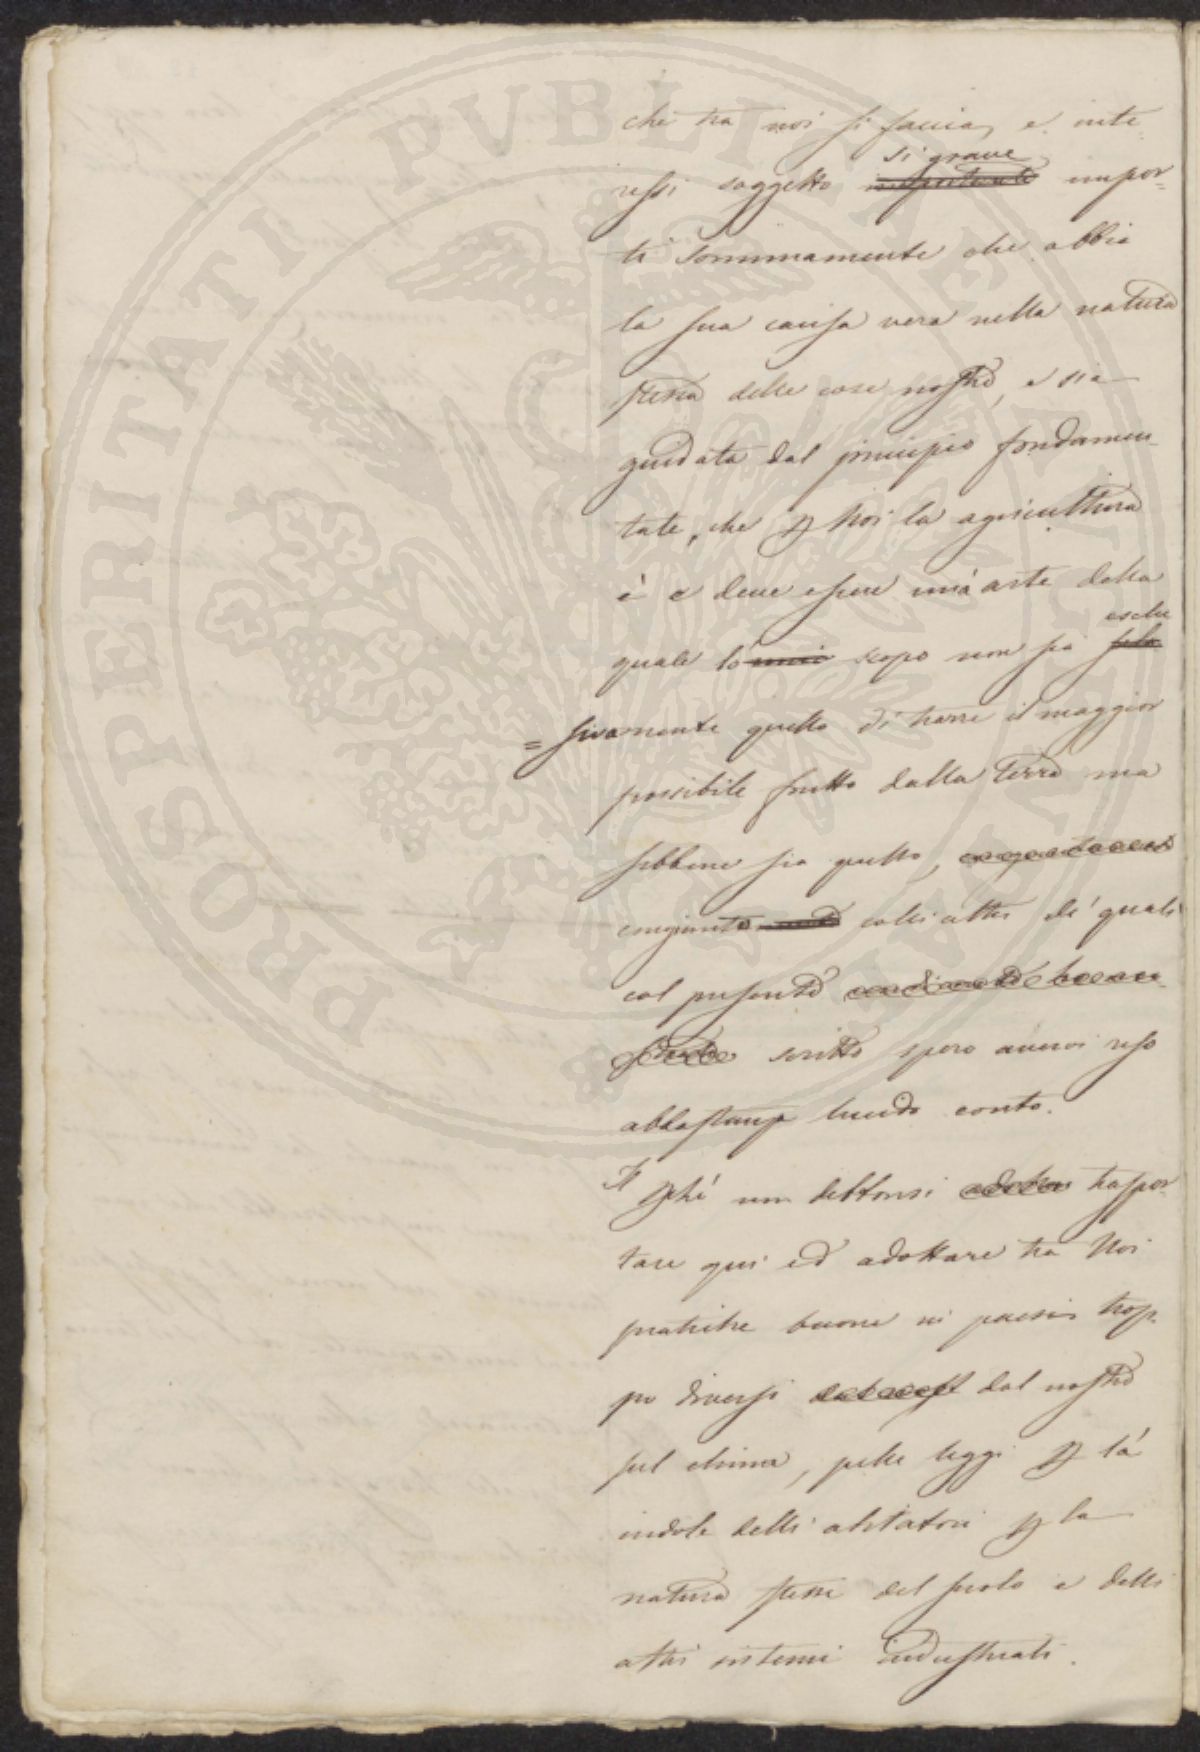 PROSPERITATI PVBLICAE AVGENDAE
che tra noi si faccia, e inte
ressi soggetto si grave impor=
ti sommamente che abbia
la sua causa vera nella natura
stessa delle cose nostre, e sia
guidata dal principio fondamen
tale, che p Noi la agricoltura
è e deve essere un'arte della
quale lo scopo non sia esclu
=sivamente quello di trarre il maggior
possibile frutto dalla Terra ma
sebbene sia quello,
congiunto colli altri de' quali
col presente
scritto spero avervi reso
abbastanza lucido conto.
II pchè non debbonsi traspor
tare qui ed adottare tra Noi
pratiche buone in paesi trop
po diversi dal nostro
pel clima, pelle leggi p la
indole delli abitatori p la
natura stessa del suolo e delli
altri sistemi industriali.